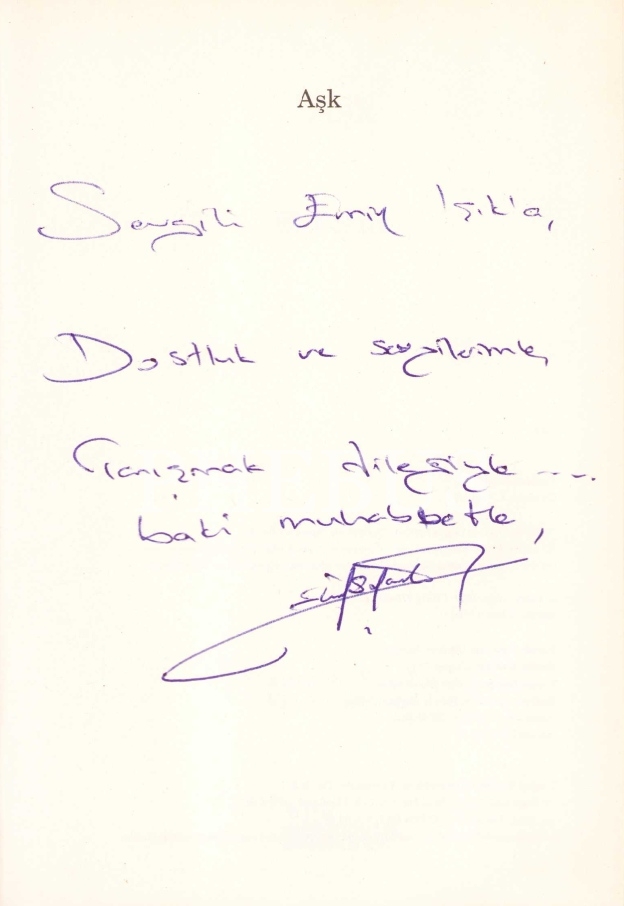 Aşk
Sevgili Emin Işık'a,
Dostluk ve sevgilerimle,
Tanışmak dileğiyle ....
baki muhabbetle,